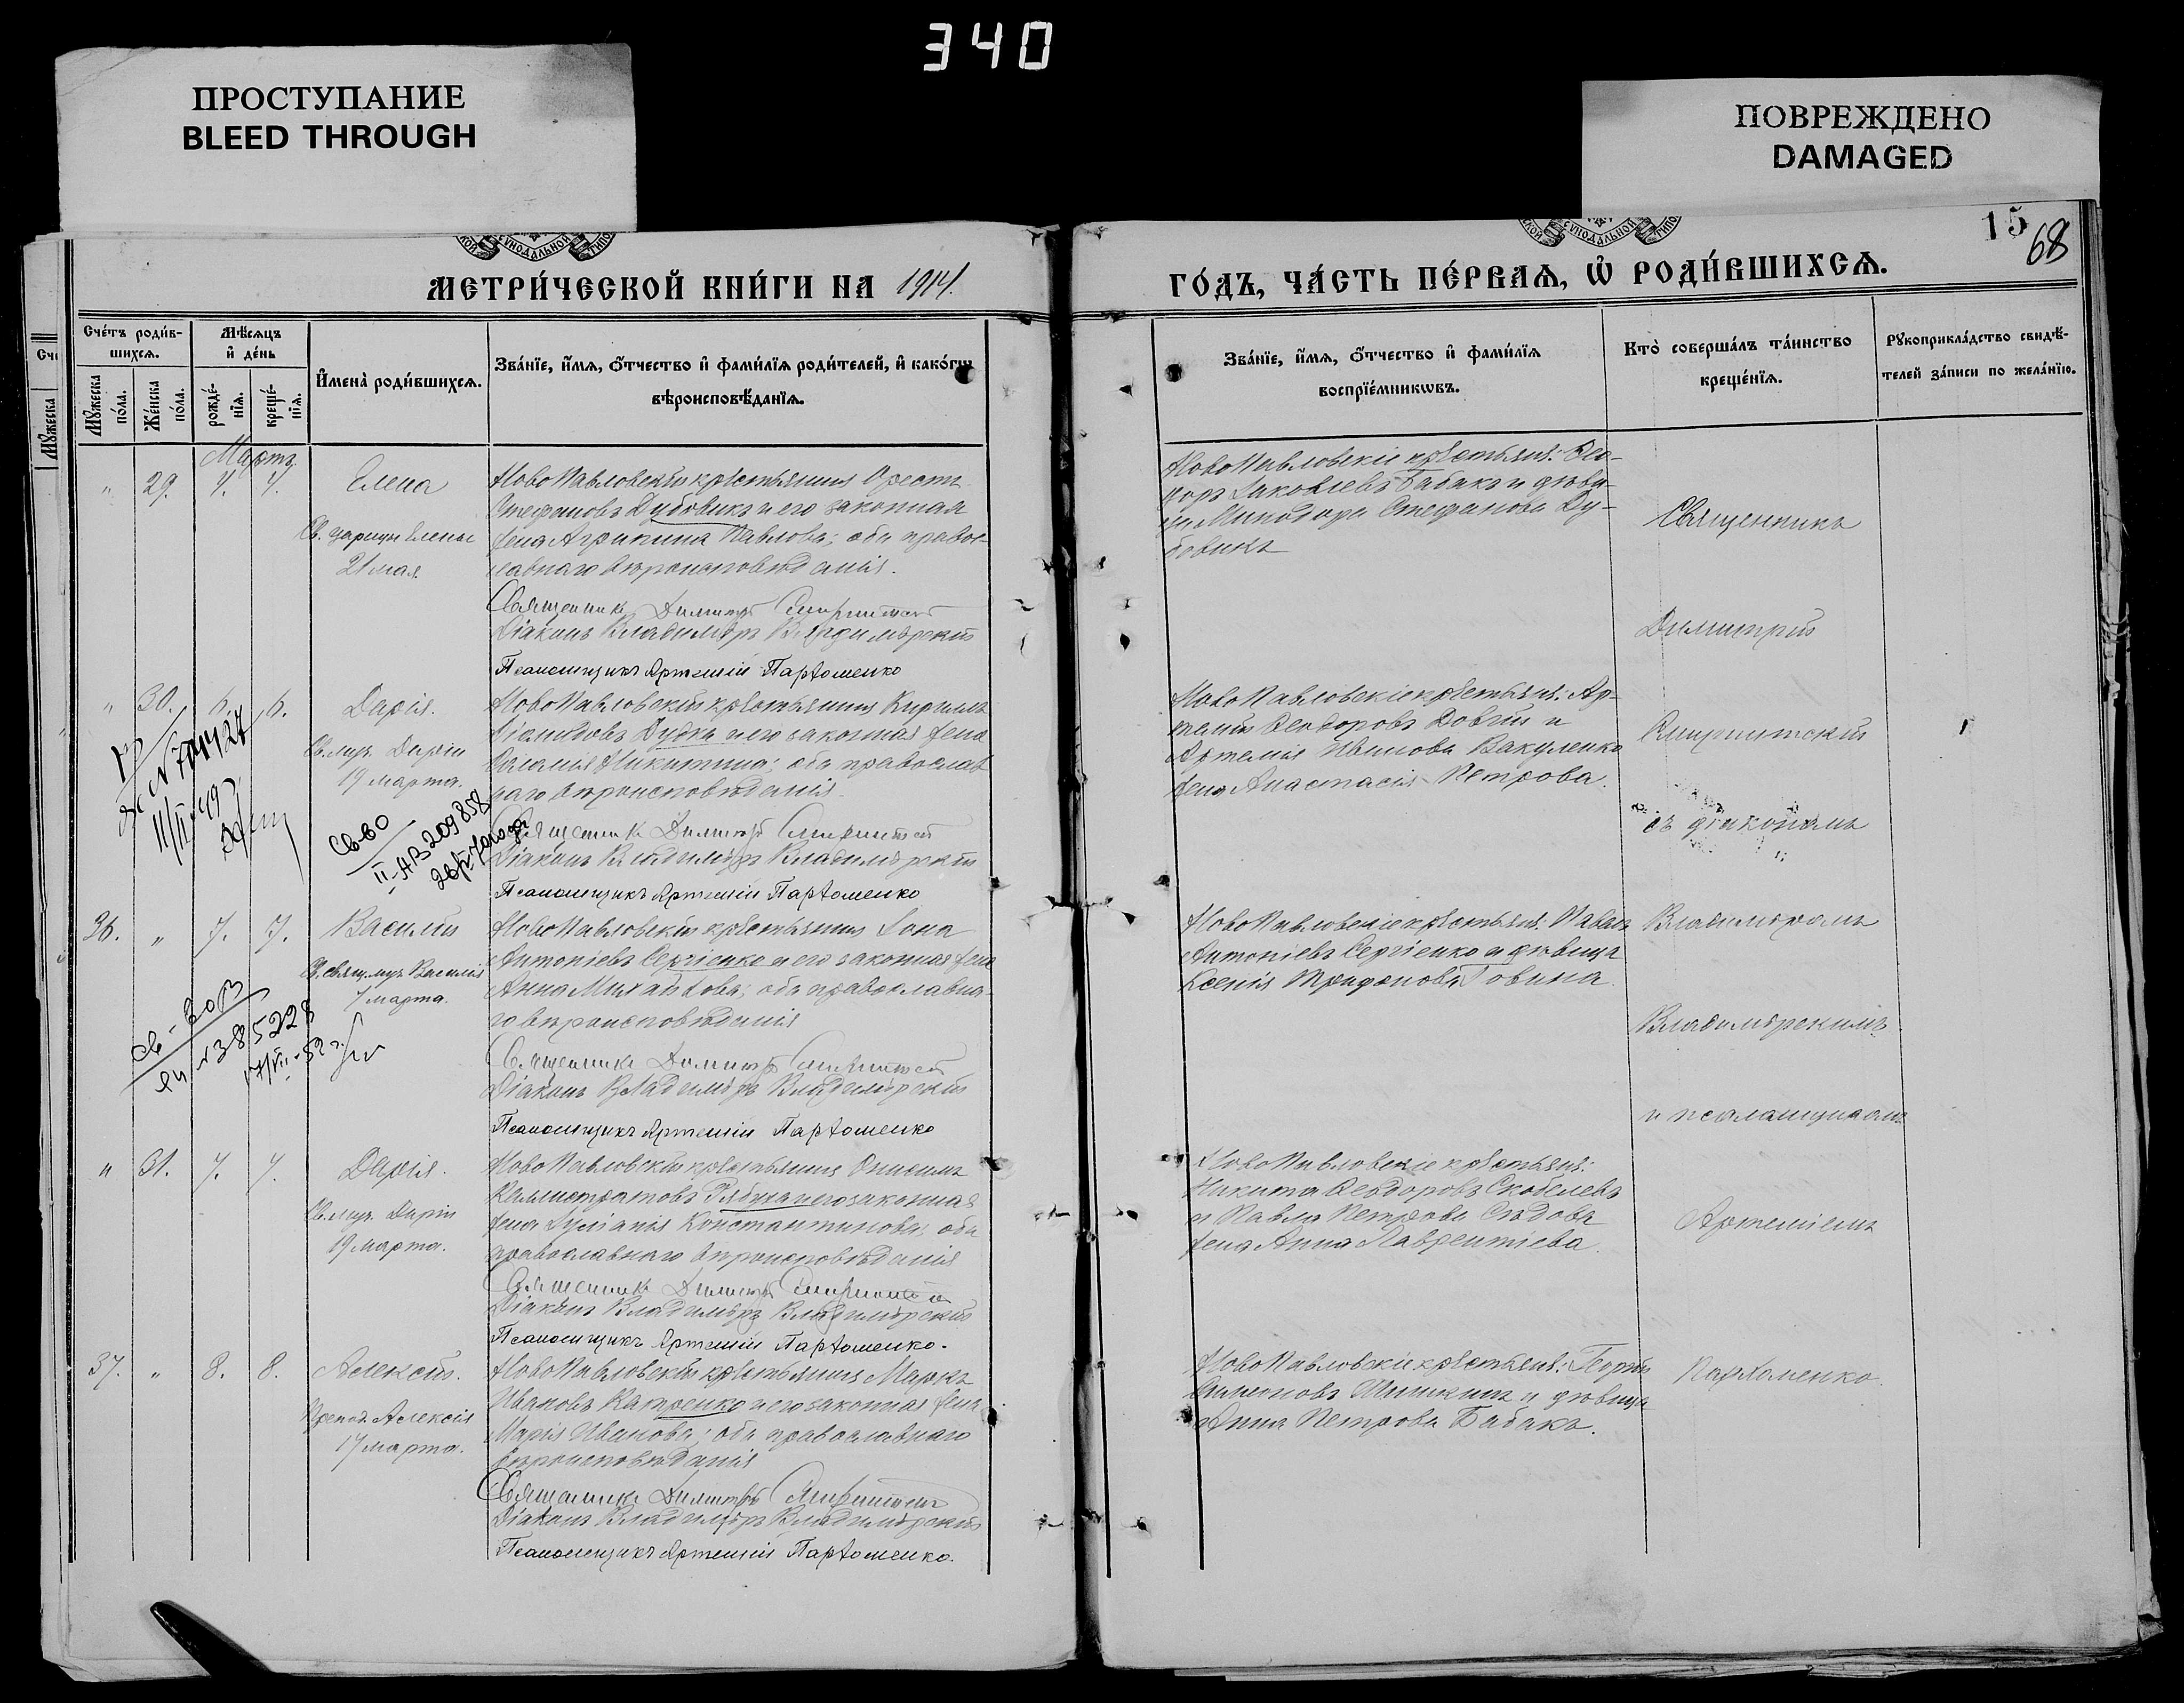 340
ПРОСТУПАНИЕ
BLEED THROUGH
ПОВРЕЖДЕНО
DAMAGED
15
68
МЕТРИ́ЧЕСКОЙ КНИ́ГИ НА 1914.
ГО́ДЪ, ЧА́СТЬ ПЕ́РВАѦ, Ѡ҆ РОДИ́ВШИХСѦ.
Сче́тъ роди́в-
шихсѧ.
Мѣ́сѧцъ
и҆ де́нь
Мꙋжеска
по́ла.
Же́нска
по́ла.
рожде́-
нїѧ.
креще́-
нїѧ.
И҆мена̀ роди́вшихсѧ.
Зва́нїе, и҆́мѧ, ѻ҆́тчество и҆ фами́лїѧ роди́телей, и҆ како́гѡ
вѣроисповѣ́данїѧ.
Зва́нїе, и҆́мѧ, ѻ҆́тчество и҆ фами́лїѧ
воспрїе́мникѡвъ.
Кто̀ соверша́лъ та́инство
креще́нїѧ.
Рꙋкоприкла́дство свидѣ́-
телей за́писи по жела́нїю.
Мартъ
" 29. 4. 4. Елена
Св. царицы Елены
21 мая.
Новопавловскій крестьянинъ Орестъ
Стефановъ Дубовикъ и его законная
жена Агрипина Павлова; оба правос-
лавнаго вѣроисповѣданія.
Священникъ Димитрій
Діаконъ Владиміръ Владимірскій
Псаломщикъ Артемій Пархоменко
Новопавловскіе крестьяне: Ѳео-
доръ Іаковлевъ Бабакъ и дѣви-
ца Стефанова Ду-
бовикъ
" 30. 6. 6. Дарія.
Св. муч. Даріи
19 марта.
Новопавловскій крестьянинъ Кирилъ
Дудка и его законная жена
Никитина; оба православ
наго вѣроисповѣданія.
Священникъ Димитрій
Діаконъ Владиміръ Владимірскій
Псаломщикъ Артемій Пархоменко
Новопавловскіе крестьяне: Ар-
темій Ѳеодоровъ Довгій и
Артемія Иванова Вакуленко
жена Анастасія Петрова.
11/II-49
Св-во
II-АВ 209858
36. " 7. 7. Василій
Св. свящ. муч. Василія
7 марта.
Новопавловскій крестьянинъ Іона
Антоніевъ Сергіенко и его законная жена
Анна Михайлова; оба православна-
го вѣроисповѣданія
Священникъ Димитрій
Діаконъ Владиміръ Владимірскій
Псаломщикъ Артемій Пархоменко
Новопавловскіе крестьяне: Павелъ
Антоніевъ Сергіенко и дѣвица
Ксенія Трифонова
№ 385228
" 31. 7. 7. Дарія.
Св. муч. Даріи
19 марта.
Новопавловскій крестьянинъ Онисимъ
Каллистратовъ и его законная
жена Іуліанія Константинова; оба
православнаго вѣроисповѣданія
Священникъ Димитрій
Діаконъ Владиміръ Владимірскій
Псаломщикъ Артемій Пархоменко.
Новопавловскіе крестьяне:
Никита Ѳеодоровъ Скобелевъ
и Павла Петрова Сѣдова
жена Анна Лаврентіева.
37. " 8. 8. Алексѣй.
Препод. Алексія
17 марта.
Новопавловскій крестьянинъ Маркъ
Ивановъ и его законная жена
Марія Иванова; оба православнаго
вѣроисповѣданія
Священникъ Димитрій
Діаконъ Владиміръ Владимірскій
Псаломщикъ Артемій Пархоменко.
Новопавловскіе крестьяне: Георгій
Симеоновъ Шишкинъ и дѣвица
Анна Петрова Бабакъ.
Священникъ
Димитрій
съ діакономъ
Владиміромъ
Владимірскимъ
и псаломщикомъ
Артеміемъ
Пархоменко.